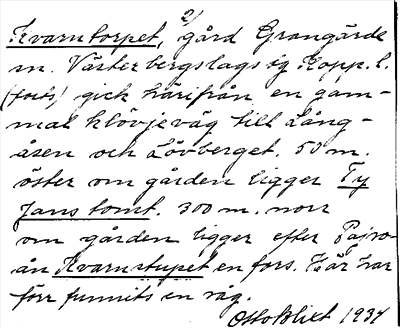 2)
Kvarntorpet, gård Grangärde
m. Västerbergslags dg Kopp. l.
(forts) gick härifrån en gam-
mal klövjeväg till Lång-
åsen och Lövberget. 50 m.
öster om gården ligger Ty
Jans tomt. 300 m. norr
om gården ligger efter Pajso-
ån Kvarnstupet en fors. Här har
förr funnits en väg.
Otto Blixt 1934